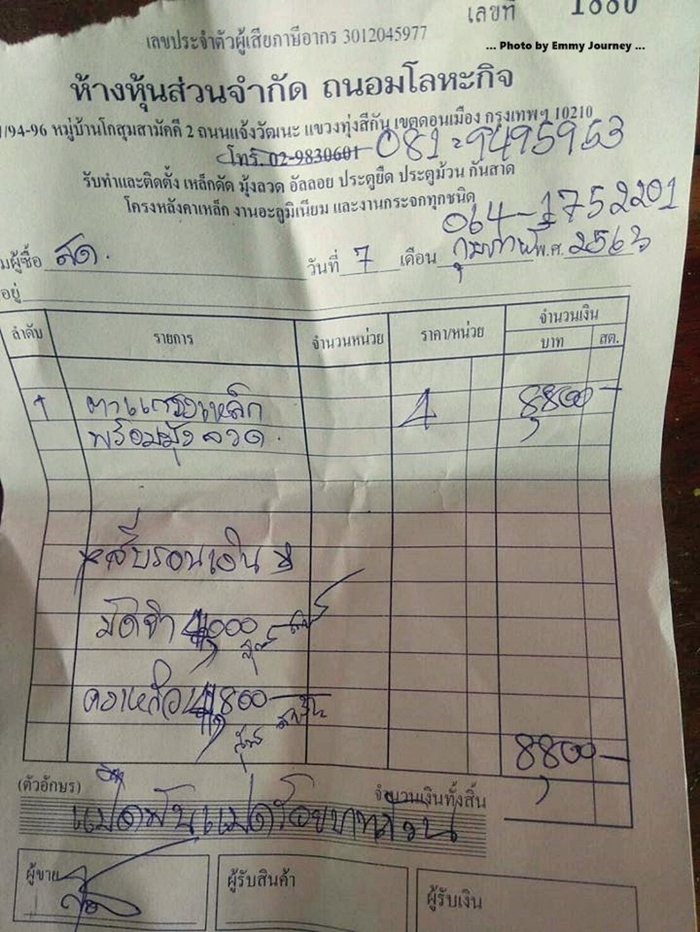 เลขที่ 1880
เลขประจำตัวผู้เสียภาษีอากร 3012045977
... Photo by Emmy Journey ...
ห้างหุ้นส่วนจำกัด ถนอมโลหะกิจ
/94-96 หมู่บ้านโกสุมสามัคคี 2 ถนนแจ้งวัฒนะ แขวงทุ่งสีกัน เขตดอนเมือง กรุงเทพฯ 10210
โทร. 02-9830601 081-9495953
รับทำและติดตั้ง เหล็กดัด มุ้งลวด อัลลอย ประตูยืด ประตูม้วน กันสาด
โครงหลังคาเหล็ก งานอะลูมิเนียม และงานกระจกทุกชนิด
064-1752201
มผู้ซื้อ สด. วันที่ 7 เดือน กุมภาพันธ์ พ.ศ. 2563
อยู่
ลำดับ รายการ จำนวนหน่วย ราคา/หน่วย จำนวนเงิน
บาท สต.
1 ตาแกรงเหล็ก 4 8,800-
พร้อมมุ้งลวด.
มัดจำ 4,000
คงเหลือ 4,800-
8,800-
(ตัวอักษร) จำนวนเงินทั้งสิ้น
แปดพันแปดร้อยบาทถ้วน
ผู้ขาย ผู้รับสินค้า ผู้รับเงิน